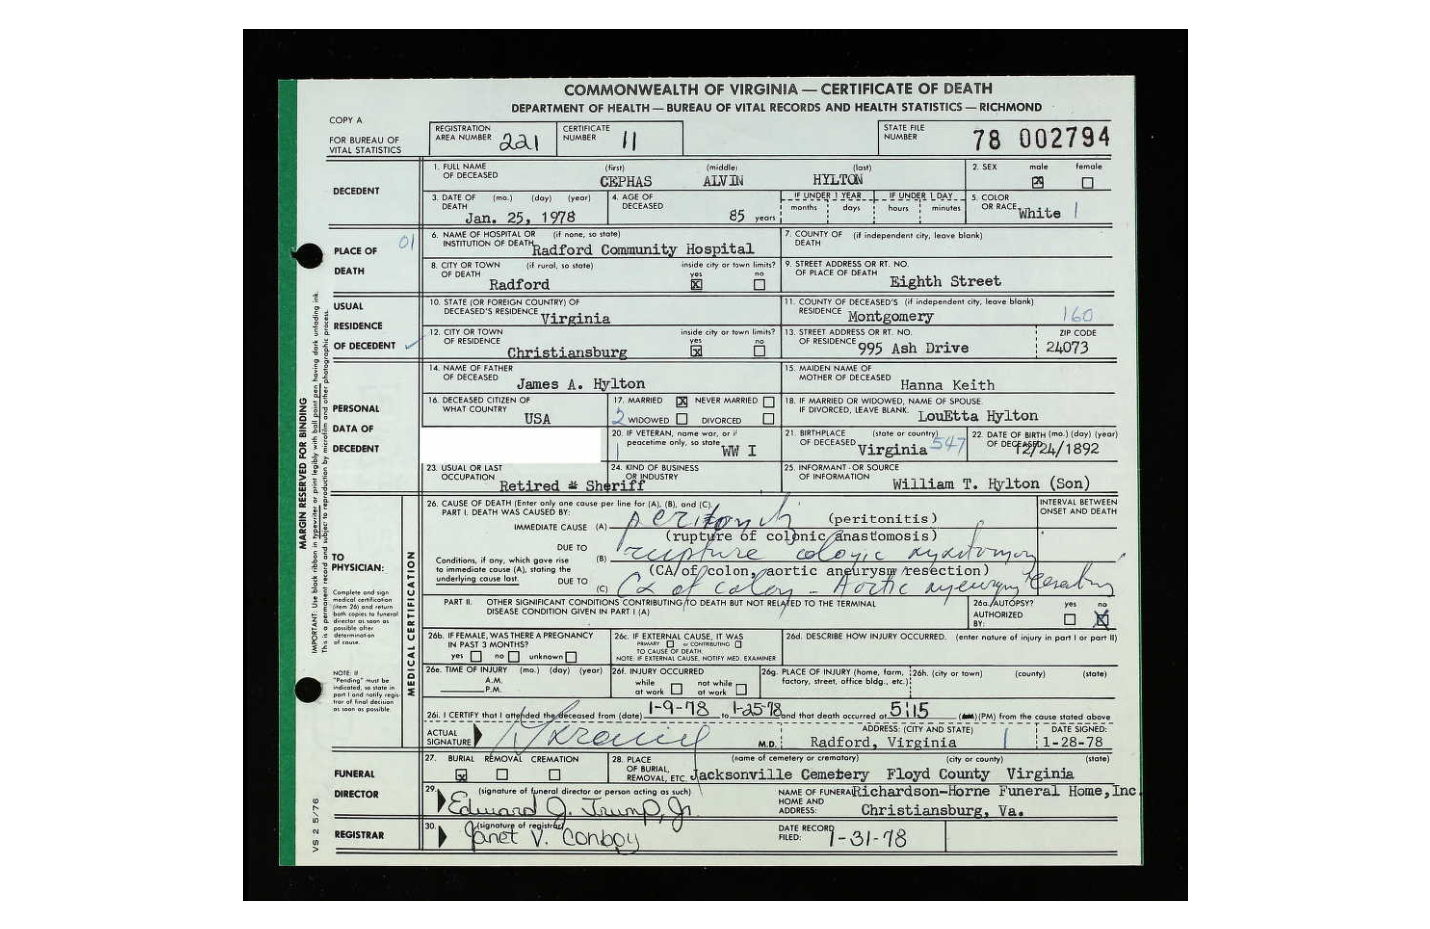 COMMONWEALTH OF VIRGINIA — CERTIFICATE OF DEATH
DEPARTMENT OF HEALTH — BUREAU OF VITAL RECORDS AND HEALTH STATISTICS — RICHMOND
COPY A
FOR BUREAU OF VITAL STATISTICS
REGISTRATION AREA NUMBER 221
CERTIFICATE NUMBER 11
STATE FILE NUMBER 78 002794
DECEDENT
1. FULL NAME OF DECEASED (first) (middle) (last)
CEPHAS ALVIN HYLTON
2. SEX male ☒ female ☐
3. DATE OF DEATH (mo.) (day) (year)
Jan. 25, 1978
4. AGE OF DECEASED 85 years
IF UNDER 1 YEAR months days
IF UNDER 1 DAY hours minutes
5. COLOR OR RACE White 1
PLACE OF DEATH
01
6. NAME OF HOSPITAL OR INSTITUTION OF DEATH (if none, so state)
Radford Community Hospital
7. COUNTY OF DEATH (if independent city, leave blank)
8. CITY OR TOWN OF DEATH (if rural, so state) inside city or town limits? yes ☒ no ☐
Radford
9. STREET ADDRESS OR RT. NO. OF PLACE OF DEATH
Eighth Street
USUAL RESIDENCE OF DECEDENT ✓
10. STATE (OR FOREIGN COUNTRY) OF DECEASED'S RESIDENCE
Virginia
11. COUNTY OF DECEASED'S RESIDENCE (if independent city, leave blank)
Montgomery 160
12. CITY OR TOWN OF RESIDENCE inside city or town limits? yes ☒ no ☐
Christiansburg
13. STREET ADDRESS OR RT. NO. OF RESIDENCE
995 Ash Drive
ZIP CODE 24073
PERSONAL DATA OF DECEDENT
14. NAME OF FATHER OF DECEASED
James A. Hylton
15. MAIDEN NAME OF MOTHER OF DECEASED
Hanna Keith
16. DECEASED CITIZEN OF WHAT COUNTRY
USA
17. MARRIED ☒ NEVER MARRIED ☐
2 WIDOWED ☐ DIVORCED ☐
18. IF MARRIED OR WIDOWED, NAME OF SPOUSE. IF DIVORCED, LEAVE BLANK.
LouEtta Hylton
20. IF VETERAN, name war, or if peacetime only, so state
WW I
21. BIRTHPLACE OF DECEASED (state or country)
Virginia 547
22. DATE OF BIRTH (mo.) (day) (year) OF DECEASED
12/24/1892
23. USUAL OR LAST OCCUPATION
Retired Sheriff
24. KIND OF BUSINESS OR INDUSTRY
25. INFORMANT - OR SOURCE OF INFORMATION
William T. Hylton (Son)
MARGIN RESERVED FOR BINDING
IMPORTANT: Use black ribbon in typewriter or print legibly with ball point pen having dark unfading ink.
This is a permanent record and subject to reproduction by microfilm and other photographic process.
TO PHYSICIAN:
Complete and sign medical certification (item 26) and return both copies to funeral director as soon as possible after determination of cause.
NOTE: If "Pending" must be indicated, so state in part I and notify registrar of final decision as soon as possible.
MEDICAL CERTIFICATION
26. CAUSE OF DEATH (Enter only one cause per line for (A), (B), and (C).
PART I. DEATH WAS CAUSED BY:
INTERVAL BETWEEN ONSET AND DEATH
IMMEDIATE CAUSE (A) peritonitis (peritonitis)
(rupture of colonic anastomosis)
DUE TO (B) rupture colonic anastomosis
Conditions, if any, which gave rise to immediate cause (A), stating the underlying cause last.
(CA of colon, aortic aneurysm resection)
DUE TO (C) Ca of colon - Aortic aneurysm resection
PART II. OTHER SIGNIFICANT CONDITIONS CONTRIBUTING TO DEATH BUT NOT RELATED TO THE TERMINAL DISEASE CONDITION GIVEN IN PART I (A)
26a. AUTOPSY? yes ☐ no ☒
AUTHORIZED BY:
26b. IF FEMALE, WAS THERE A PREGNANCY IN PAST 3 MONTHS?
yes ☐ no ☐ unknown ☐
26c. IF EXTERNAL CAUSE, IT WAS
PRIMARY ☐ or CONTRIBUTING ☐
TO CAUSE OF DEATH
NOTE: IF EXTERNAL CAUSE, NOTIFY MED. EXAMINER
26d. DESCRIBE HOW INJURY OCCURRED. (enter nature of injury in part I or part II)
26e. TIME OF INJURY (mo.) (day) (year)
A.M.
P.M.
26f. INJURY OCCURRED
while at work ☐ not while at work ☐
26g. PLACE OF INJURY (home, farm, factory, street, office bldg., etc.)
26h. (city or town) (county) (state)
26i. I CERTIFY that I attended the deceased from (date) 1-9-78 to 1-25-78 and that death occurred at 5:15 (PM) from the cause stated above
ACTUAL SIGNATURE M.D.
ADDRESS: (CITY AND STATE)
Radford, Virginia
DATE SIGNED:
1-28-78
FUNERAL DIRECTOR
27. BURIAL ☒ REMOVAL ☐ CREMATION ☐
28. PLACE OF BURIAL, REMOVAL, ETC. (name of cemetery or crematory) (city or county) (state)
Jacksonville Cemetery Floyd County Virginia
29. (signature of funeral director or person acting as such)
Edward J. Trump, Jr.
NAME OF FUNERAL HOME AND ADDRESS:
Richardson-Horne Funeral Home, Inc.
Christiansburg, Va.
REGISTRAR
30. (signature of registrar)
Janet V. Conboy
DATE RECORD FILED: 1-31-78
VS 2 5/76